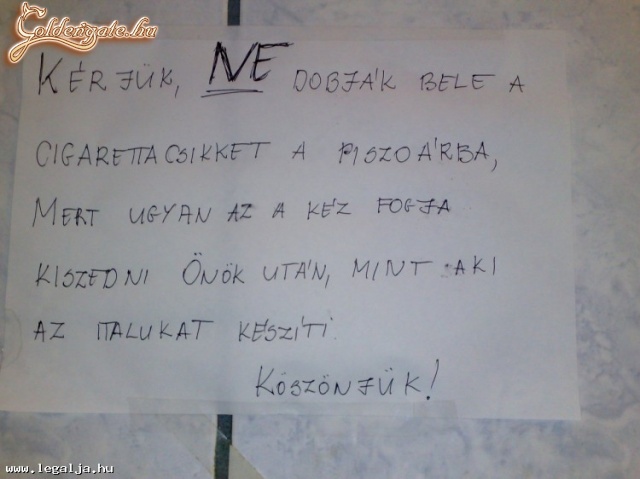 Goldengate.hu
KÉRJÜK, NE DOBJÁK BELE A
CIGARETTACSIKKET A PISZOÁRBA,
MERT UGYAN AZ A KÉZ FOGJA
KISZEDNI ÖNÖK UTÁN, MINT AKI
AZ ITALUKAT KÉSZÍTI.
KÖSZÖNJÜK!
www.legalja.hu